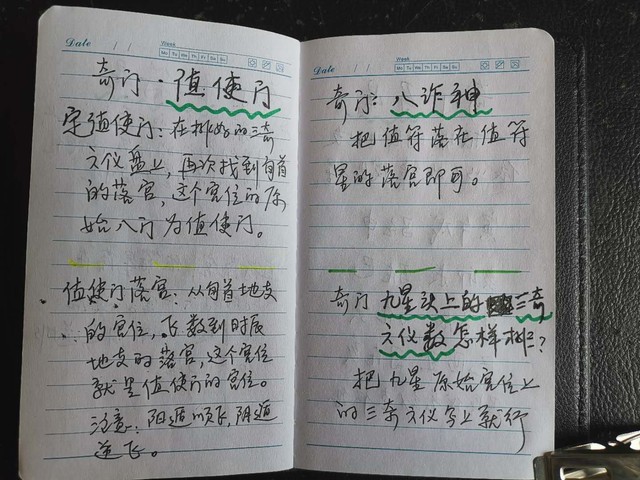 Date / /
Week
Mo Tu We Th Fr Sa Su
奇门·值使门
定值使门：在排好的三奇
六仪盘上，再次找到旬首
的落宫，这个宫位的原
始八门为值使门。
值使门落宫：从旬首地支
的宫位，飞数到时辰
地支的落宫，这个宫位
就是值使门的宫位。
注意：阳遁顺飞，阴遁
逆飞。
Date / /
Week
Mo Tu We Th Fr Sa Su
奇门：八诈神
把值符落在值符
星的落宫即可。
奇门九星头上的三奇
六仪数怎样排？
把九星原始宫位上
的三奇六仪写上就行